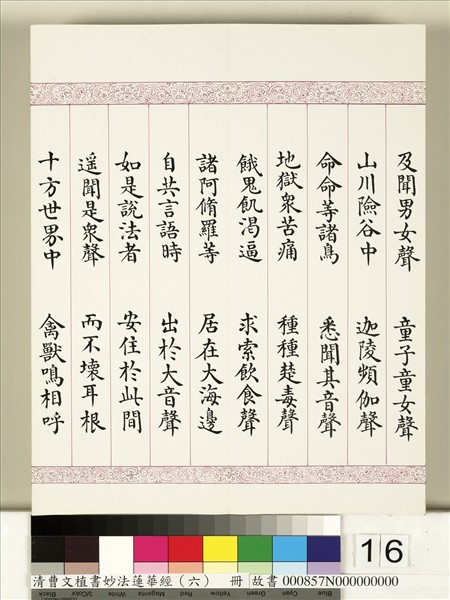 及聞男女聲 童子童女聲
山川險谷中 迦陵頻伽聲
命命等諸鳥 悉聞其音聲
地獄衆苦痛 種種楚毒聲
餓鬼飢渴逼 求索飲食聲
諸阿脩羅等 居在大海邊
自共言語時 出於大音聲
如是說法者 安住於此間
遥聞是衆聲 而不壞耳根
十方世界中 禽獸鳴相呼
16
Black 3/Color White Magenta Red Yellow Green Cyan Blue
清曹文植書妙法蓮華經（六） 冊 故書 000857N000000000